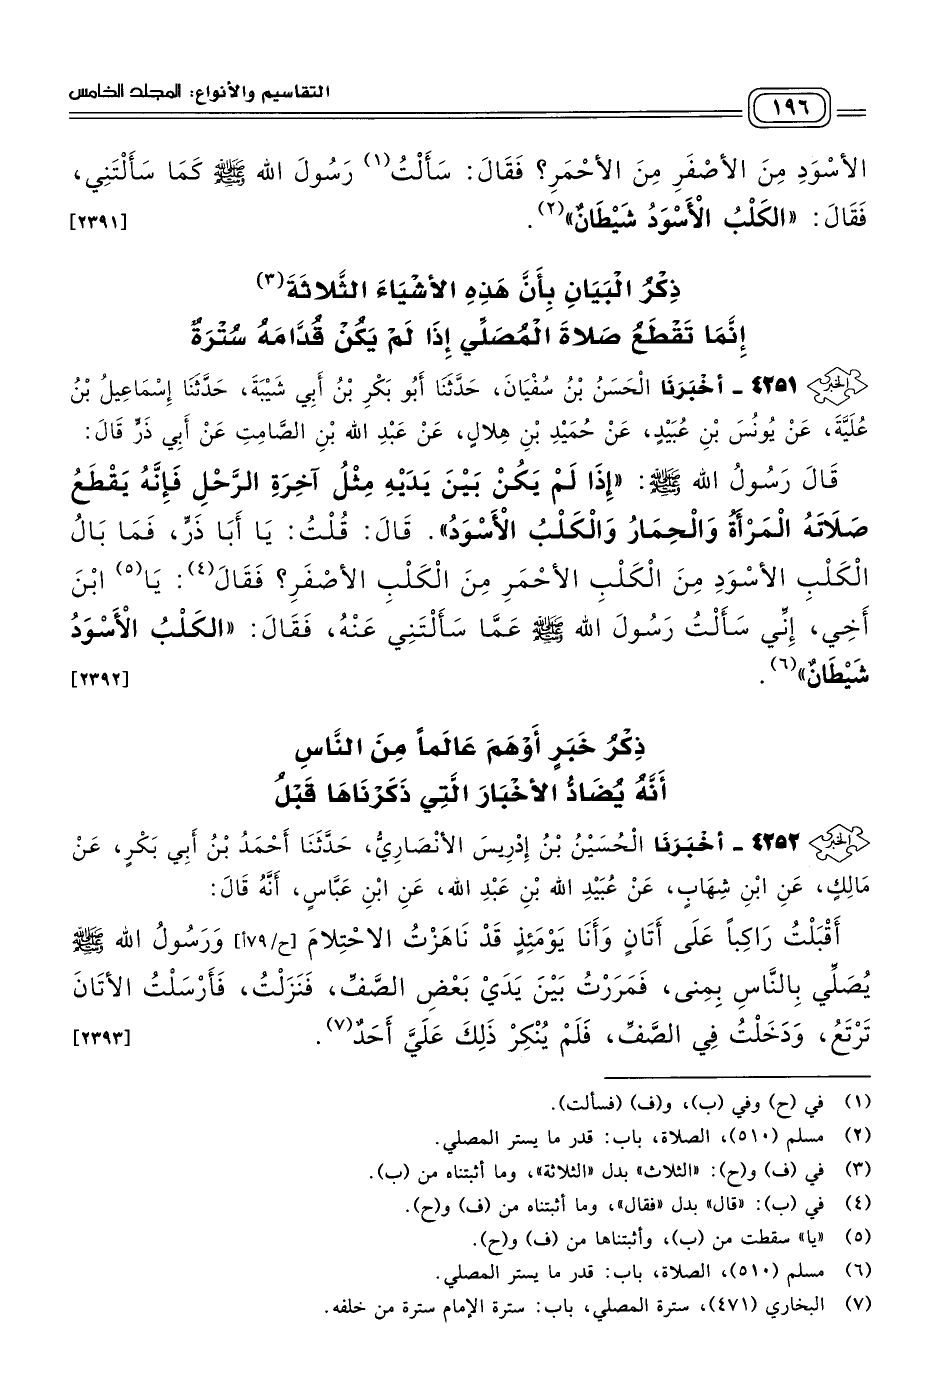 ١٩٦
التقاسيم والأنواع: المجلد الخامس
الأَسْوَدِ مِنَ الأَصْفَرِ مِنَ الأَحْمَرِ؟ فَقَالَ: سَأَلْتُ(١) رَسُولَ الله ﷺ كَمَا سَأَلْتَنِي،
فَقَالَ: «الكَلْبُ الْأَسْوَدُ شَيْطَانٌ»(٢). [٢٣٩١]
ذِكْرُ الْبَيَانِ بِأَنَّ هَذِهِ الأَشْيَاءَ الثَّلاثَةَ(٣)
إِنَّمَا تَقْطَعُ صَلاةَ الْمُصَلِّي إِذَا لَمْ يَكُنْ قُدَّامَهُ سُتْرَةٌ
الخبر ٤٢٥١ ـ أَخْبَرَنَا الْحَسَنُ بْنُ سُفْيَانَ، حَدَّثَنَا أَبُو بَكْرِ بْنُ أَبِي شَيْبَةَ، حَدَّثَنَا إِسْمَاعِيلُ بْنُ
عُلَيَّةَ، عَنْ يُونُسَ بْنِ عُبَيْدٍ، عَنْ حُمَيْدِ بْنِ هِلالٍ، عَنْ عَبْدِ الله بْنِ الصَّامِتِ عَنْ أَبِي ذَرٍّ قَالَ:
قَالَ رَسُولُ الله ﷺ: «إِذَا لَمْ يَكُنْ بَيْنَ يَدَيْهِ مِثْلُ آخِرَةِ الرَّحْلِ فَإِنَّهُ يَقْطَعُ
صَلَاتَهُ الْمَرْأَةُ وَالْحِمَارُ وَالْكَلْبُ الْأَسْوَدُ». قَالَ: قُلْتُ: يَا أَبَا ذَرٍّ، فَمَا بَالُ
الْكَلْبِ الأَسْوَدِ مِنَ الْكَلْبِ الأَحْمَرِ مِنَ الْكَلْبِ الأَصْفَرِ؟ فَقَالَ(٤): يَا(٥) ابْنَ
أَخِي، إِنِّي سَأَلْتُ رَسُولَ الله ﷺ عَمَّا سَأَلْتَنِي عَنْهُ، فَقَالَ: «الكَلْبُ الأَسْوَدُ
شَيْطَانٌ»(٦). [٢٣٩٢]
ذِكْرُ خَبَرٍ أَوْهَمَ عَالَماً مِنَ النَّاسِ
أَنَّهُ يُضَادُّ الأَخْبَارَ الَّتِي ذَكَرْنَاهَا قَبْلُ
الخبر ٤٢٥٢ ـ أَخْبَرَنَا الْحُسَيْنُ بْنُ إِدْرِيسَ الأَنْصَارِيُّ، حَدَّثَنَا أَحْمَدُ بْنُ أَبِي بَكْرٍ، عَنْ
مَالِكٍ، عَنِ ابْنِ شِهَابٍ، عَنْ عُبَيْدِ الله بْنِ عَبْدِ الله، عَنِ ابْنِ عَبَّاسٍ، أَنَّهُ قَالَ:
أَقْبَلْتُ رَاكِباً عَلَى أَتَانٍ وَأَنَا يَوْمَئِذٍ قَدْ نَاهَزْتُ الاحْتِلامَ [ح/٧٩أ] وَرَسُولُ الله ﷺ
يُصَلِّي بِالنَّاسِ بِمِنى، فَمَرَرْتُ بَيْنَ يَدَيْ بَعْضِ الصَّفِّ، فَنَزَلْتُ، فَأَرْسَلْتُ الأَتَانَ
تَرْتَعُ، وَدَخَلْتُ فِي الصَّفِّ، فَلَمْ يُنْكِرْ ذَلِكَ عَلَيَّ أَحَدٌ(٧). [٢٣٩٣]
(١) في (ح) وفي (ب)، و(ف) (فسألت).
(٢) مسلم (٥١٠)، الصلاة، باب: قدر ما يستر المصلي.
(٣) في (ف) و(ح): «الثلاث» بدل «الثلاثة»، وما أثبتناه من (ب).
(٤) في (ب): «قال» بدل «فقال»، وما أثبتناه من (ف) و(ح).
(٥) «يا» سقطت من (ب)، وأثبتناها من (ف) و(ح).
(٦) مسلم (٥١٠)، الصلاة، باب: قدر ما يستر المصلي.
(٧) البخاري (٤٧١)، سترة المصلي، باب: سترة الإمام سترة من خلفه.